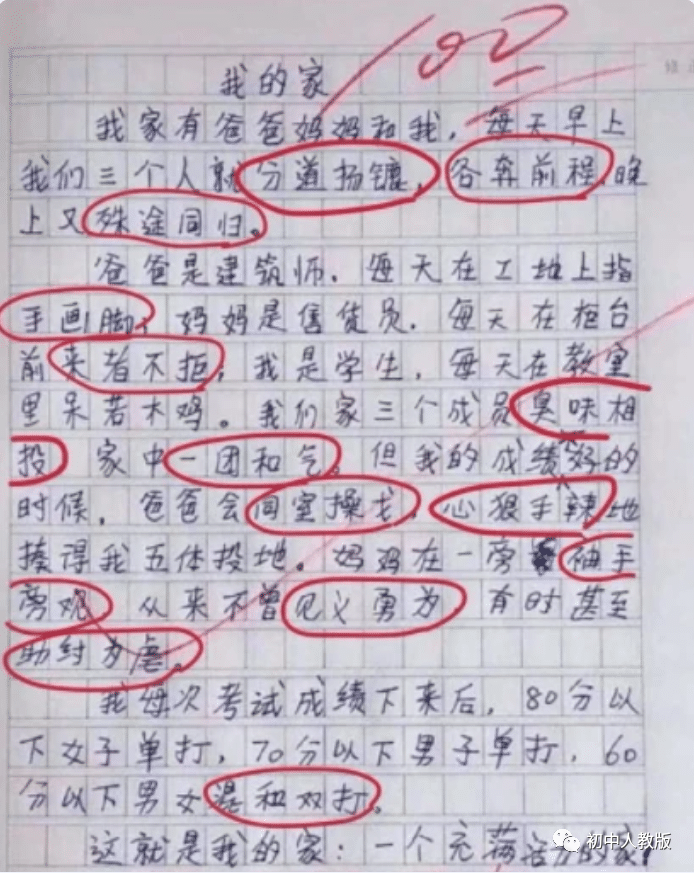 100
我的家
我家有爸爸妈妈和我，每天早上
我们三个人就分道扬镳，各奔前程，晚
上又殊途同归。
爸爸是建筑师，每天在工地上指
手画脚；妈妈是售货员，每天在柜台
前来者不拒；我是学生，每天在教室
里呆若木鸡。我们家三个成员臭味相
投，家中一团和气。但我的成绩好的
时候，爸爸会同室操戈，心狠手辣地
揍得我五体投地。妈妈在一旁袖手
旁观，从来不曾见义勇为，有时甚至
助纣为虐。
我每次考试成绩下来后，80分以
下女子单打，70分以下男子单打，60
分以下男女混和双打。
这就是我的家：一个充满活力的家！
初中人教版